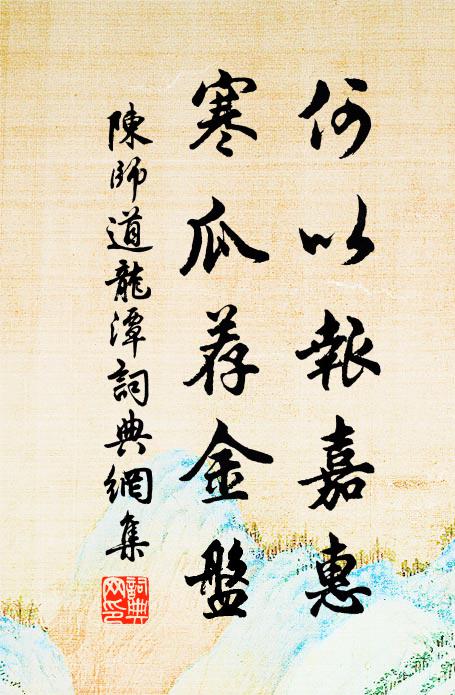 何以報嘉惠
寒瓜荐金盤
陳師道龍潭詞典網集
詞典网印